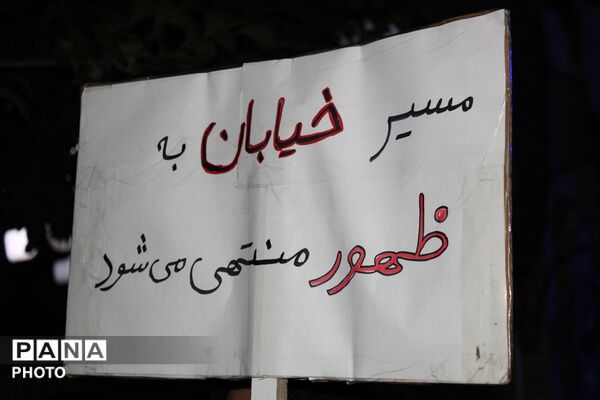 مسیر خیابان به
ظهور منتهی می‌شود
PANA
PHOTO